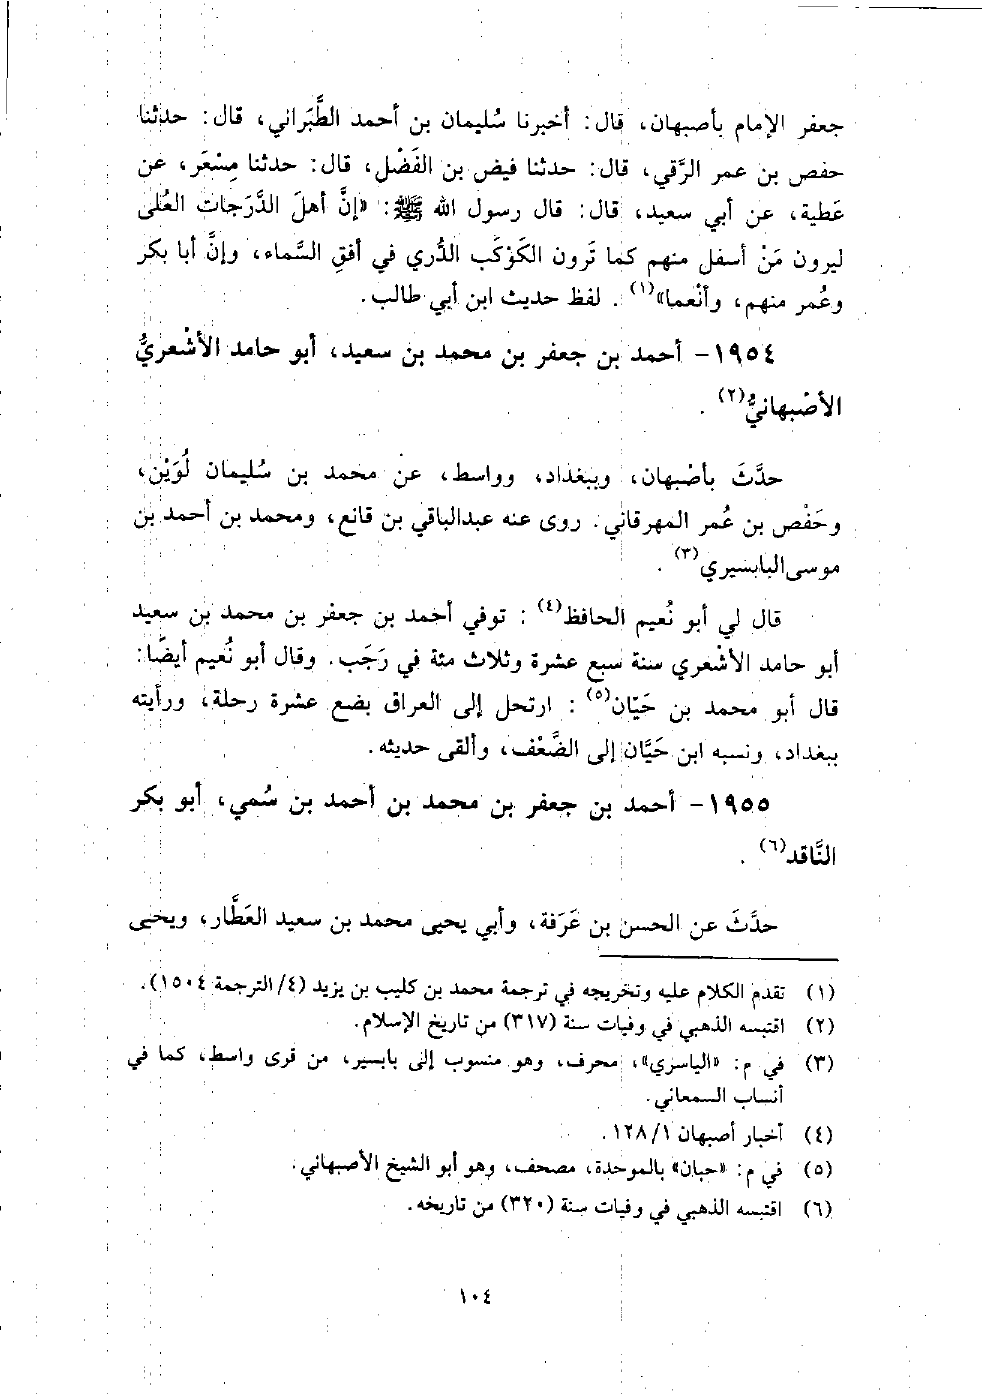 جعفر الإمام بأصبهان، قال: أخبرنا سُليمان بن أحمد الطَّبَراني، قال: حدثنا
حفص بن عمر الرَّقي، قال: حدثنا فيض بن الفَضْل، قال: حدثنا مِسْعَر، عن
عَطية، عن أبي سعيد، قال: قال رسول الله ﷺ: «إنَّ أهلَ الدَّرَجات العُلَى
ليرون مَنْ أسفل منهم كما تَرون الكَوْكَب الدُّري في أفقِ السَّماء، وإنَّ أبا بكر
وعُمر منهم، وأنْعما»(١). لفظ حديث ابن أبي طالب.
١٩٥٤- أحمد بن جعفر بن محمد بن سعيد، أبو حامد الأشْعريُّ
الأصْبهانيُّ(٢).
حدَّثَ بأصْبهان، وببغداد، وواسط، عن محمد بن سُليمان لُوَيْن،
وحَفْص بن عُمر المهرقاني. روى عنه عبدالباقي بن قانع، ومحمد بن أحمد بن
موسى البابسيري(٣).
قال لي أبو نُعيم الحافظ(٤): توفي أحمد بن جعفر بن محمد بن سعيد
أبو حامد الأشْعري سنة سبع عشرة وثلاث مئة في رَجَب. وقال أبو نُعيم أيضًا:
قال أبو محمد بن حَيّان(٥): ارتحل إلى العراق بضع عشرة رحلة، ورأيته
ببغداد، ونسبه ابن حَيَّان إلى الضَّعْف، وألقى حديثه.
١٩٥٥- أحمد بن جعفر بن محمد بن أحمد بن سُمي، أبو بكر
النَّاقد(٦).
حدَّثَ عن الحسن بن عَرَفة، وأبي يحيى محمد بن سعيد العَطَّار، ويحيى
(١) تقدم الكلام عليه وتخريجه في ترجمة محمد بن كليب بن يزيد (٤/ الترجمة ١٥٠٤).
(٢) اقتبسه الذهبي في وفيات سنة (٣١٧) من تاريخ الإسلام.
(٣) في م: «الياسري»، محرف، وهو منسوب إلى بابسير، من قرى واسط، كما في
أنساب السمعاني.
(٤) أخبار أصبهان ١/ ١٢٨.
(٥) في م: «حبان» بالموحدة، مصحف، وهو أبو الشيخ الأصبهاني.
(٦) اقتبسه الذهبي في وفيات سنة (٣٢٠) من تاريخه.
١٠٤